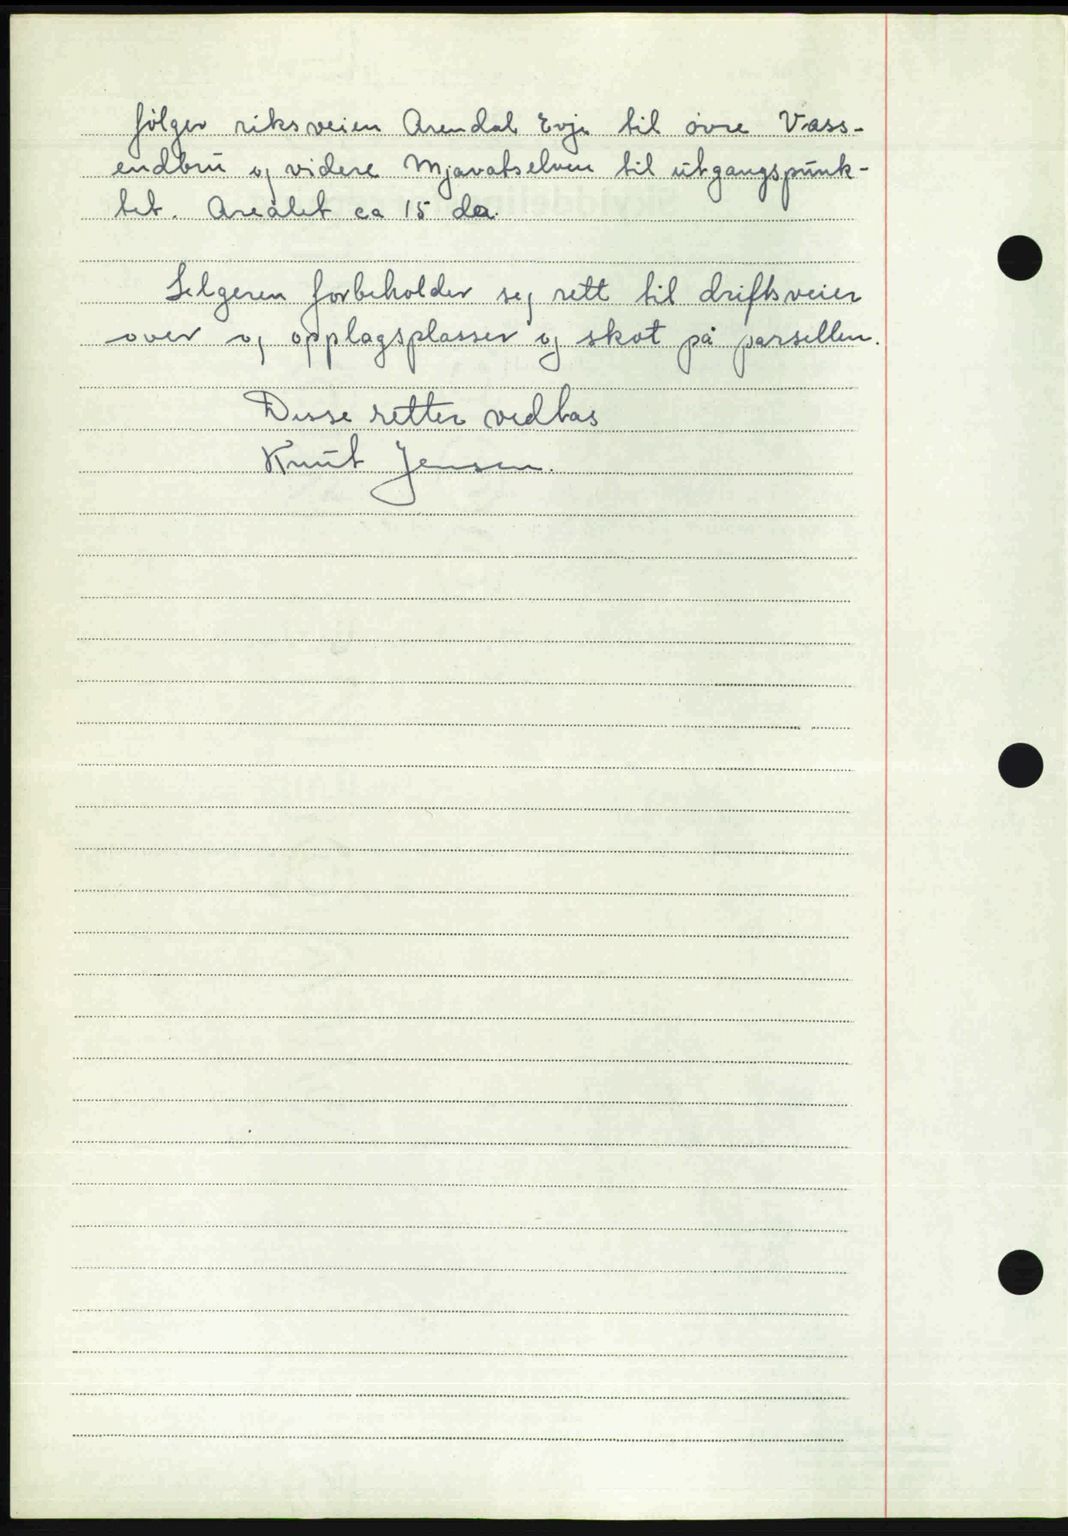 følger riksveien Arendal Evje til øvre Vass-
endbru og videre Mjavatselven til utgangspunk-
tet. Arealet ca 15 da.
Selgeren forbeholder seg rett til driftsveier
over og opplagsplasser og skot på parsellen.
Disse retter vedtas
Knut Jensen.